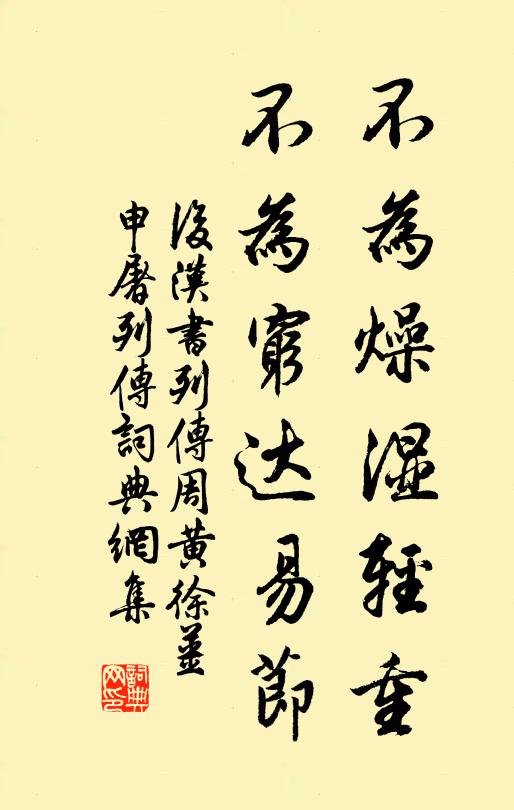 不為燥湿輕重
不為窮达易節
後漢書列傳周黃徐姜
申屠列傳詞典網集
詞典
网印